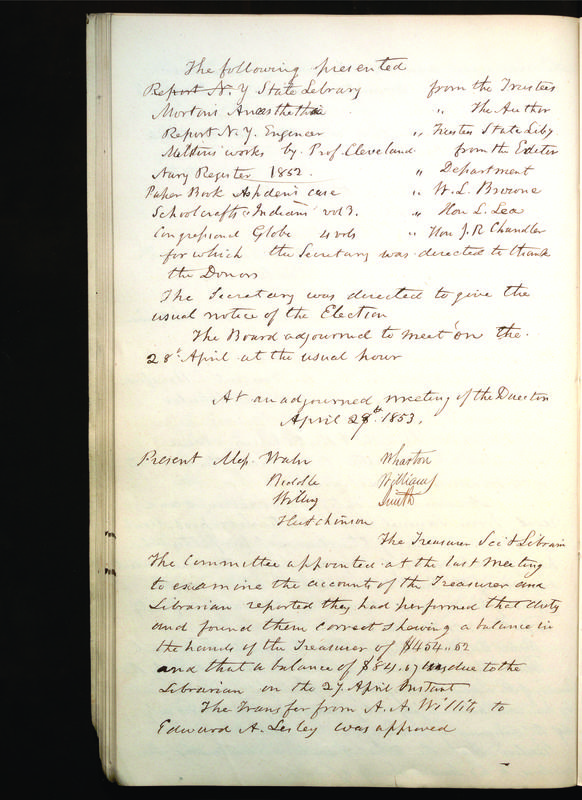 The following presented
Report N. Y State Library from the Trustees
Morton's " The Author
Report N. Y. Engineer " Trustees State Liby
Milton's works by Prof. Cleveland from the Editor
Navy Register 1852. " Department
Paper Book Aspden's case " W. L. Browne
Schoolcraft's "Indians" vol 3. " Hon L. Lea
Congressional Globe 4 vols " Hon J. R Chandler
for which the Secretary was directed to thank
the Donors
The Secretary was directed to give the
usual notice of the Election
The Board adjourned to meet on the
28th April at the usual hour
At an adjourned meeting of the Directors
April 28th 1853.
Present Mess. Waln Wharton
Biddle Williams
Willing Smith
Hutchinson
The Treasurer Sec & Librarn
The Committee appointed at the last meeting
to examine the account of the Treasurer and
Librarian reported they had performed that duty
and found them correct shewing a balance in
the hands of the Treasurer of $454..52
and that a balance of $84.67 was due to the
Librarian on the 27 April Instant
The Transfer from A. A. Willits to
Edward A. Lesley was approved